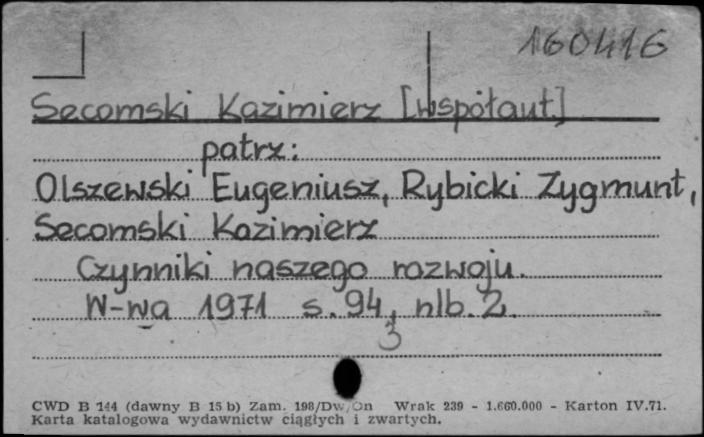 160416
Secomski Kazimierz [współaut.]
patrz:
Olszewski Eugeniusz, Rybicki Zygmunt,
Secomski Kazimierz
Czynniki naszego rozwoju.
W-wa 1971 s. 94, nlb. 2.
3
CWD B 144 (dawny B 15 b) Zam. 198/Dw/On Wrak 239 - 1.660.000 - Karton IV.71.
Karta katalogowa wydawnictw ciągłych i zwartych.